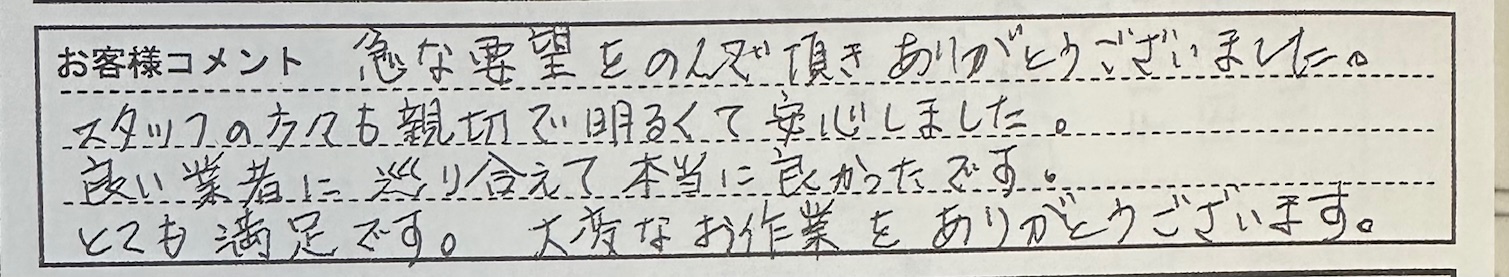 お客様コメント 急な要望をのんで頂きありがとうございました。
スタッフの方々も親切で明るくて安心しました。
良い業者に巡り合えて本当に良かったです。
とても満足です。 大変なお作業をありがとうございます。